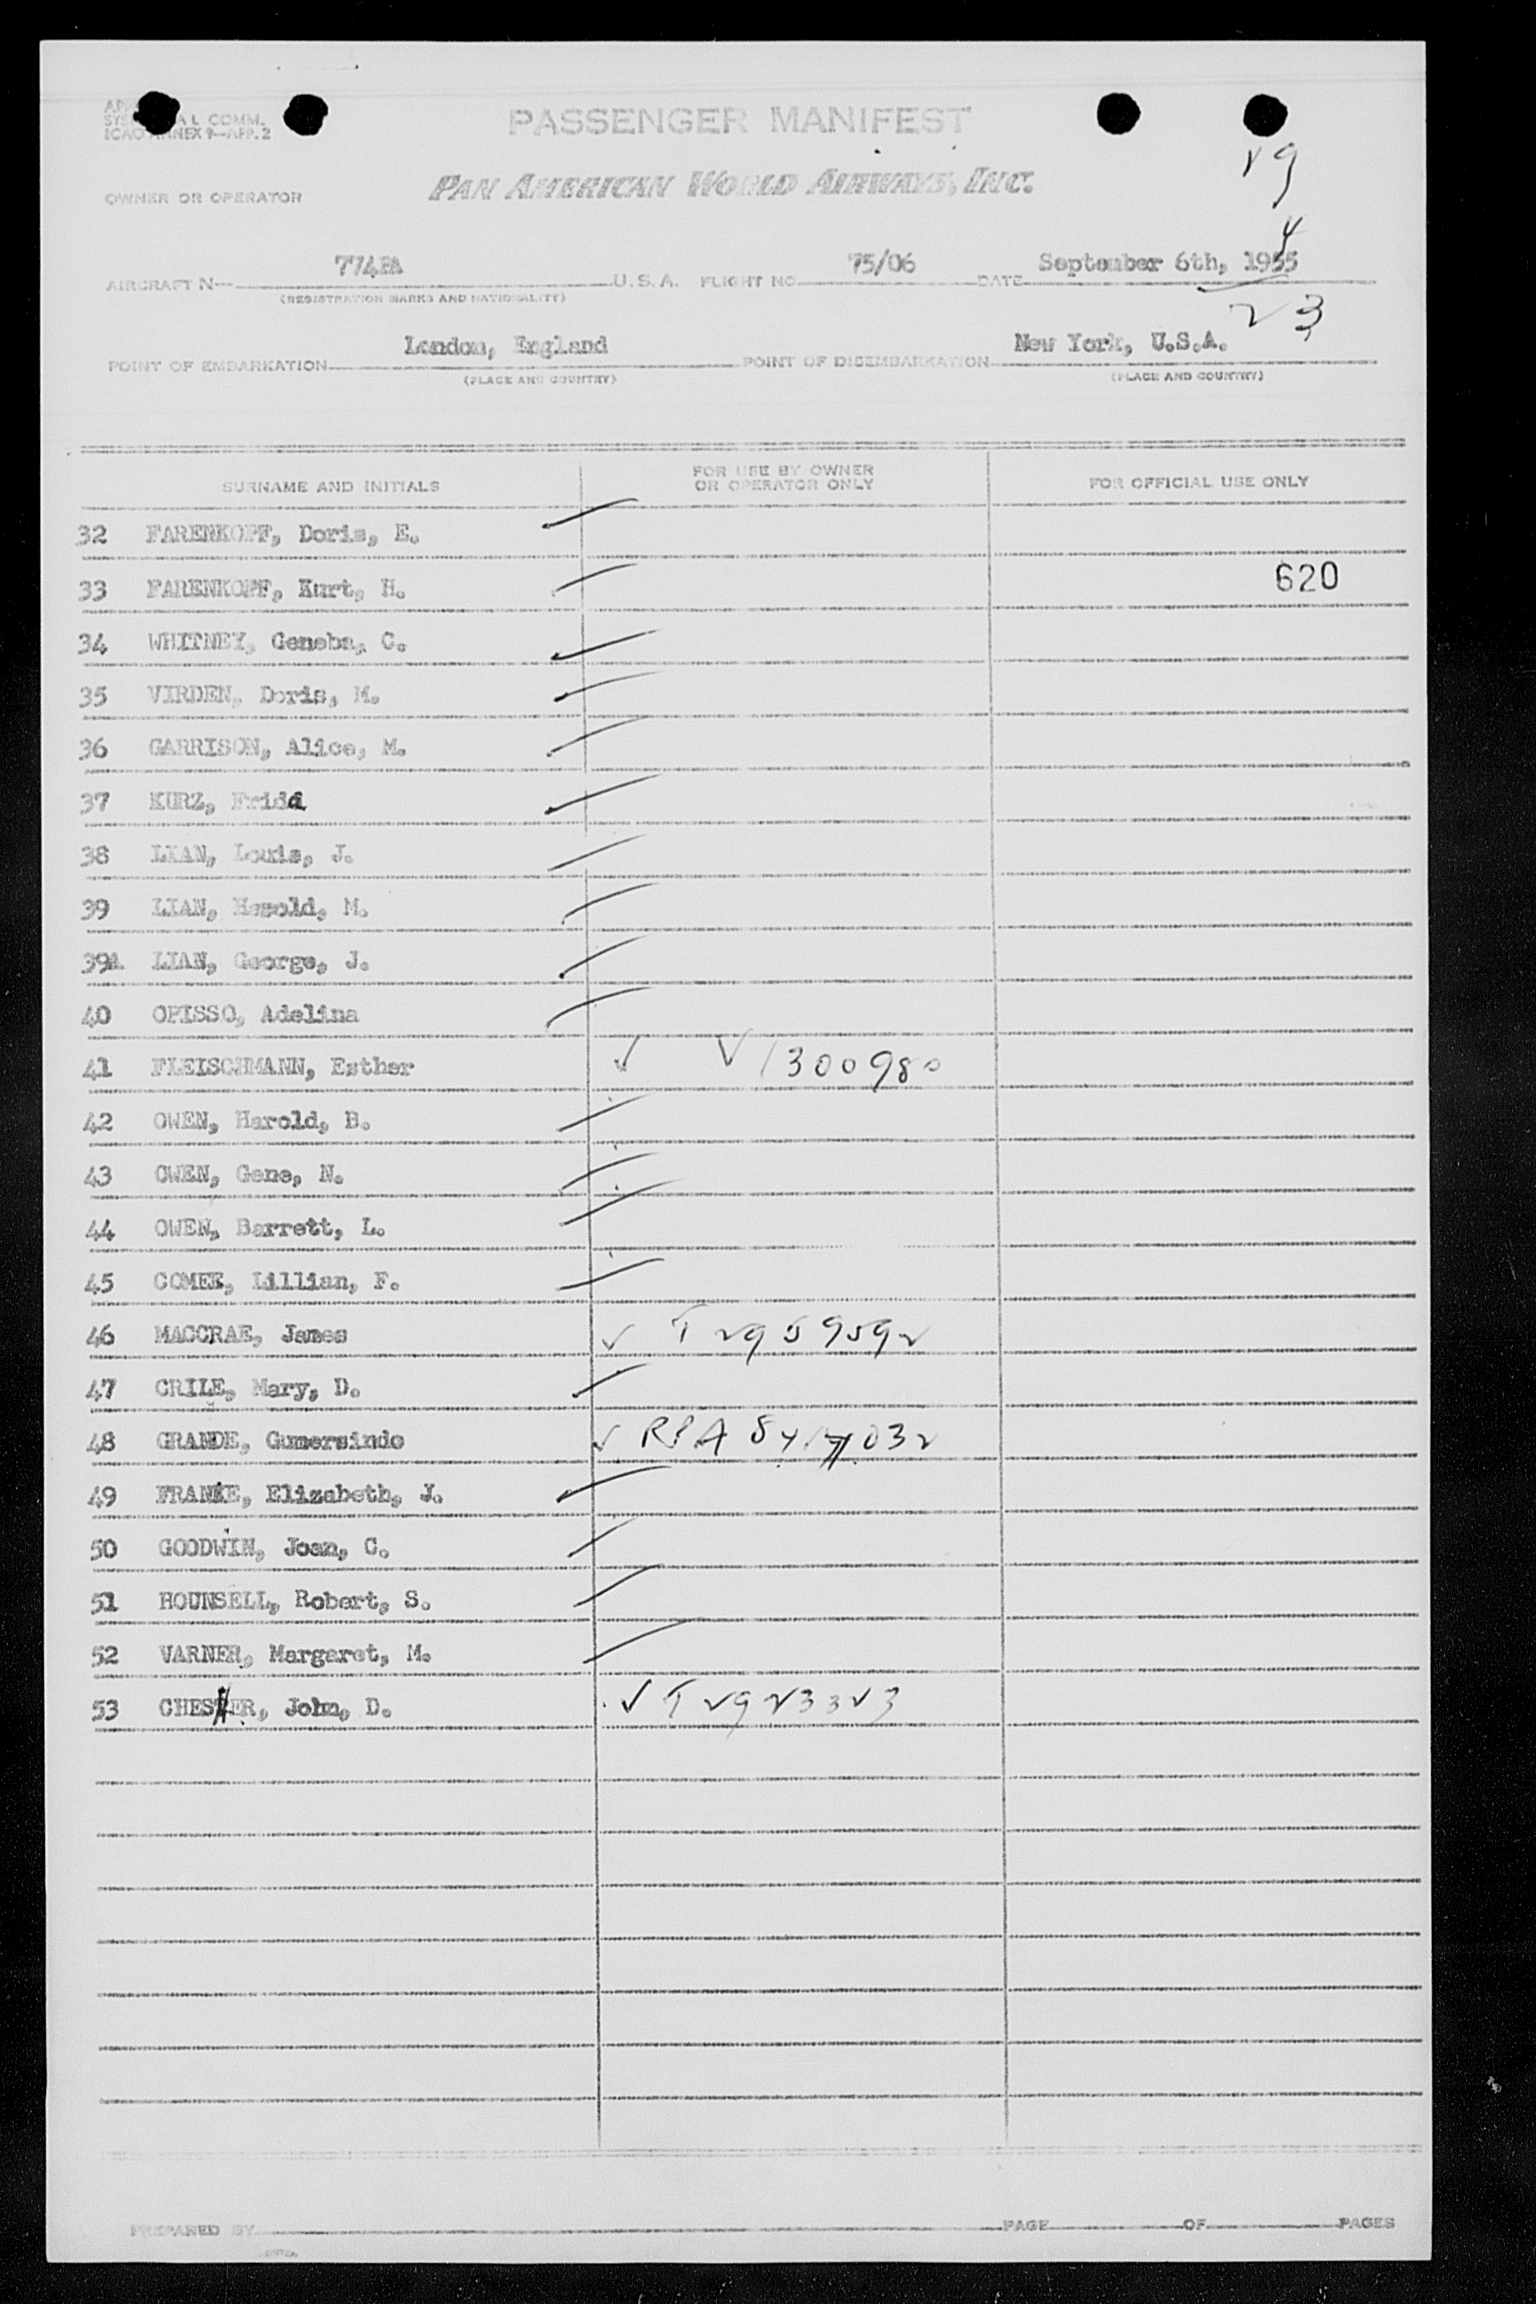 PASSENGER MANIFEST
COMM.
ICAO ANNEX 9—APP. 2
19
OWNER OR OPERATOR PAN AMERICAN WORLD AIRWAYS, INC.
4
AIRCRAFT N— 774PA U. S. A. FLIGHT NO. 75/06 DATE September 6th, 1955
(REGISTRATION MARKS AND NATIONALITY)
23
POINT OF EMBARKATION London, England POINT OF DISEMBARKATION New York, U.S.A.
(PLACE AND COUNTRY) (PLACE AND COUNTRY)
SURNAME AND INITIALS FOR USE BY OWNER OR OPERATOR ONLY FOR OFFICIAL USE ONLY
32 FARENKOPF, Doris, E.
33 FARENKOPF, Kurt, H. 620
34 WHITNEY, Geneba, C.
35 VIRDEN, Doris, M.
36 GARRISON, Alice, M.
37 KURZ, Frida
38 LIAN, Louis, J.
39 LIAN, Harold, M.
39A LIAN, George, J.
40 OPISSO, Adelina
41 FLEISCHMANN, Esther ✓ V1300980
42 OWEN, Harold, B.
43 OWEN, Gene, N.
44 OWEN, Barrett, L.
45 COMEE, Lillian, F.
46 MACCRAE, James ✓ T2959592
47 CRILE, Mary, D.
48 GRANDE, Gumersindo ✓ RPA
49 FRANKE, Elizabeth, J.
50 GOODWIN, Joan, C.
51 HOUNSELL, Robert, S.
52 VARNER, Margaret, M.
53 CHESTER, John, D. ✓ T2923323
PREPARED BY PAGE OF PAGES